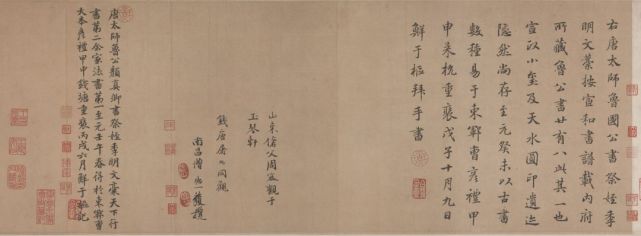 右唐太師魯國公書祭姪季
明文藁按宣和書譜載內府
所藏魯公書廿有八此其一也
宣政小璽及天水圓印遺迹
隱然尚存至元癸未以古書
數種易于東鄆曹彥禮甲
申來杭重裝戊子十月九日
鮮于樞拜手書
山東傖父周密觀于
玉琴軒
錢唐屠約同觀
南昌僧
唐太師魯公顏真卿書祭姪季明文藁天下行
書第二余家法書第一至元壬午春得於東鄆曹
大本彥禮甲申錢塘重裝丙戌六月鮮于樞記